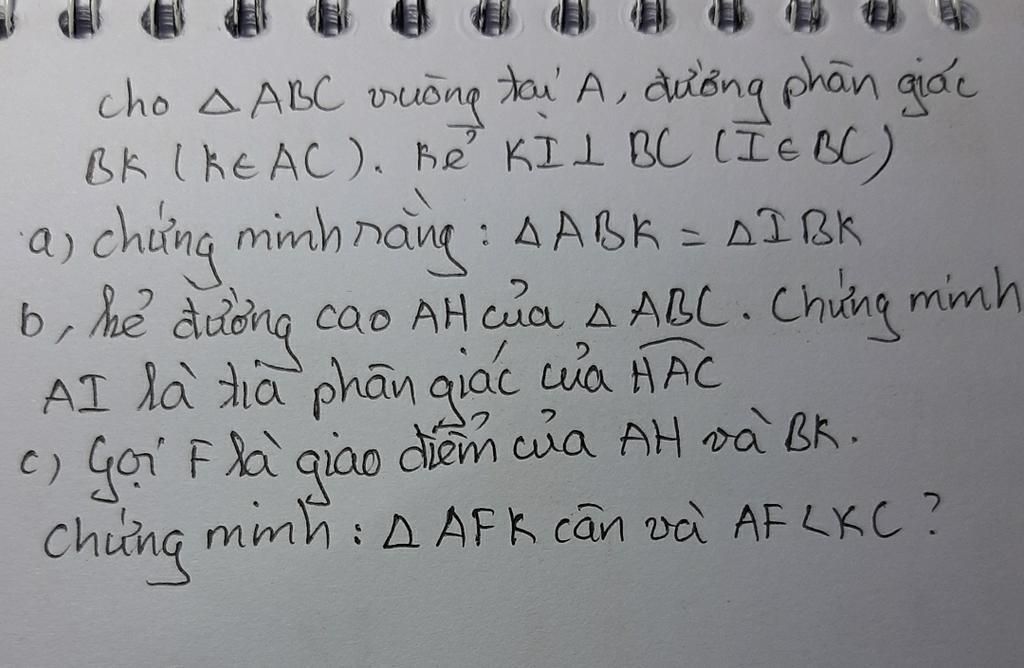 cho △ABC vuông tại A, đường phân giác
BK (K∈AC). Kẻ KI⊥ BC (I∈BC)
a) chứng minh rằng: △ABK = △IBK
b, kẻ đường cao AH của △ABC. Chứng minh
AI là tia phân giác của \widehat{HAC}
c) Gọi F là giao điểm của AH và BK.
Chứng minh: △AFK cân và AF<KC?